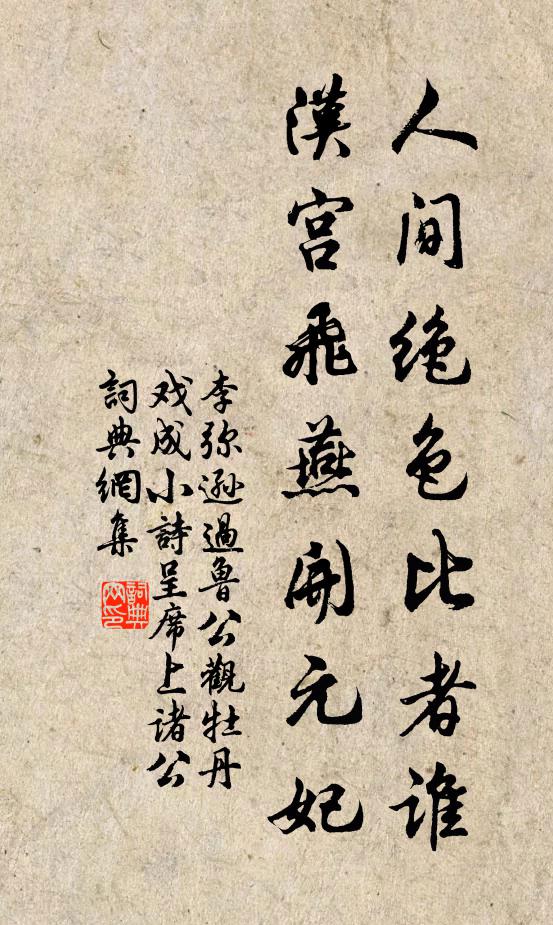 人间绝色比者谁
漢宫飛燕開元妃
李弥遜過魯公觀牡丹
戏成小詩呈席上诸公
詞典網集
詞典
网印